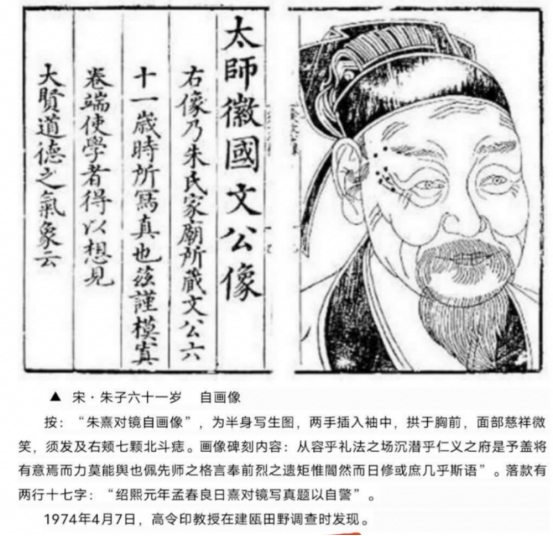 太師徽國文公像
右像乃朱氏家廟所藏文公六
十一歲時所寫真也茲謹模寘
卷端使學者得以想見
大賢道德之氣象云
▲ 宋·朱子六十一岁 自画像
按：“朱熹对镜自画像”，为半身写生图，两手插入袖中，拱于胸前，面部慈祥微
笑，须发及右颊七颗北斗痣。画像碑刻内容：从容乎礼法之场沉潜乎仁义之府是予盖将
有意焉而力莫能與也佩先师之格言奉前烈之遗矩惟闇然而日修或庶几乎斯语”。落款有
两行十七字：“绍熙元年孟春良日熹对镜写真题以自警”。
1974年4月7日，高令印教授在建瓯田野调查时发现。